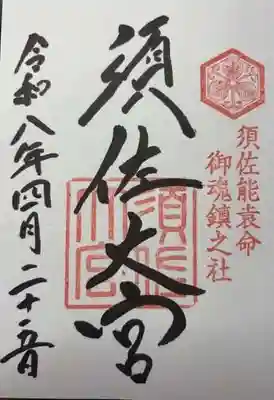 須佐能袁命
御魂鎮之社
須佐大宮
令和八年四月二十五日